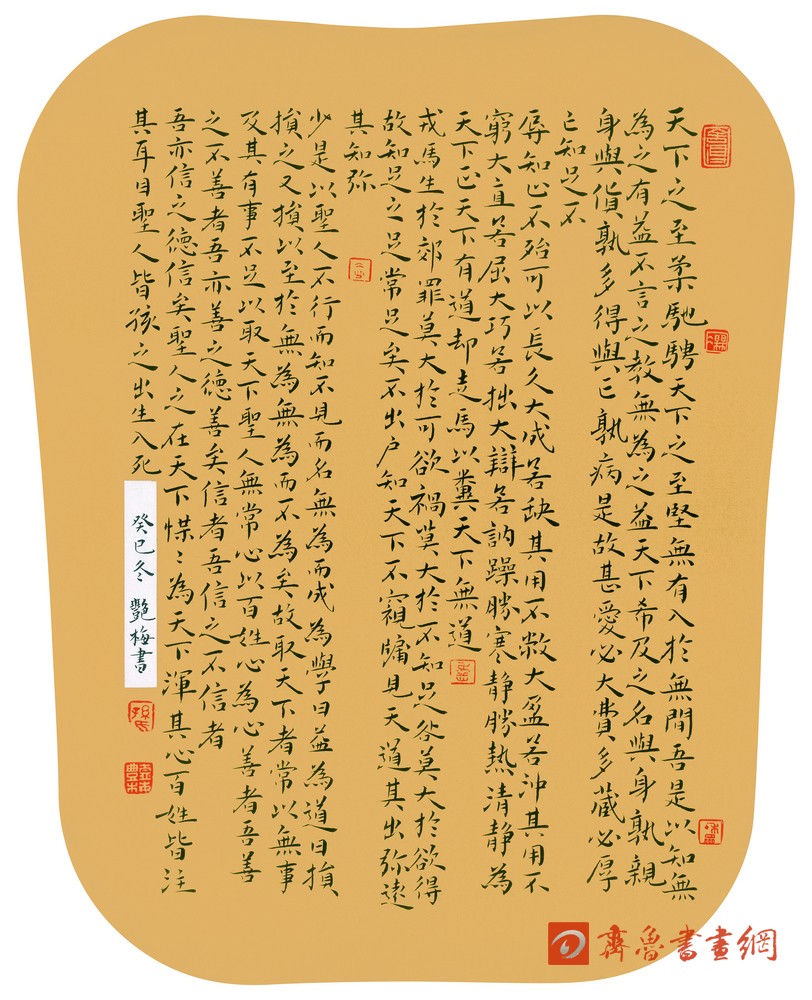 天下之至柔馳騁天下之至堅無有入於無間吾是以知無
為之有益不言之教無為之益天下希及之名與身孰親
身與貨孰多得與亡孰病是故甚愛必大費多藏必厚
亡知足不
辱知止不殆可以長久大成若缺其用不敝大盈若沖其用不
窮大直若屈大巧若拙大辯若訥躁勝寒静勝熱清静為
天下正天下有道却走馬以糞天下無道
戎馬生於郊罪莫大於可欲禍莫大於不知足咎莫大於欲得
故知足之足常足矣不出户知天下不窺牖見天道其出弥遠
其知弥
少是以聖人不行而知不見而名無為而成為學日益為道日損
損之又損以至於無為無為而不為矣故取天下者常以無事
及其有事不足以取天下聖人無常心以百姓心為心善者吾善
之不善者吾亦善之德善矣信者吾信之不信者
吾亦信之德信矣聖人之在天下惵〻為天下渾其心百姓皆注
其耳目聖人皆孩之出生入死
癸巳冬 艷梅書
孫氏
齊魯書畫網